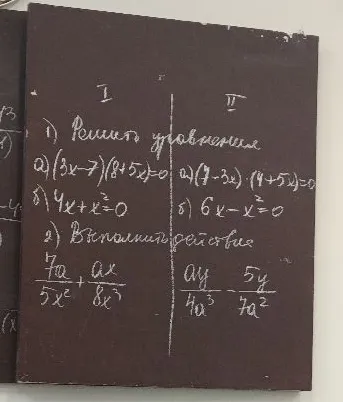 I II
1) Решить уравнения
а) (3x-7)(8+5x)=0 а) (7-3x)·(4+5x)=0
б) 4x+x²=0 б) 6x-x²=0
2) Выполнить действие
7a/5x² + ax/8x³ ay/4a³ - 5y/7a²